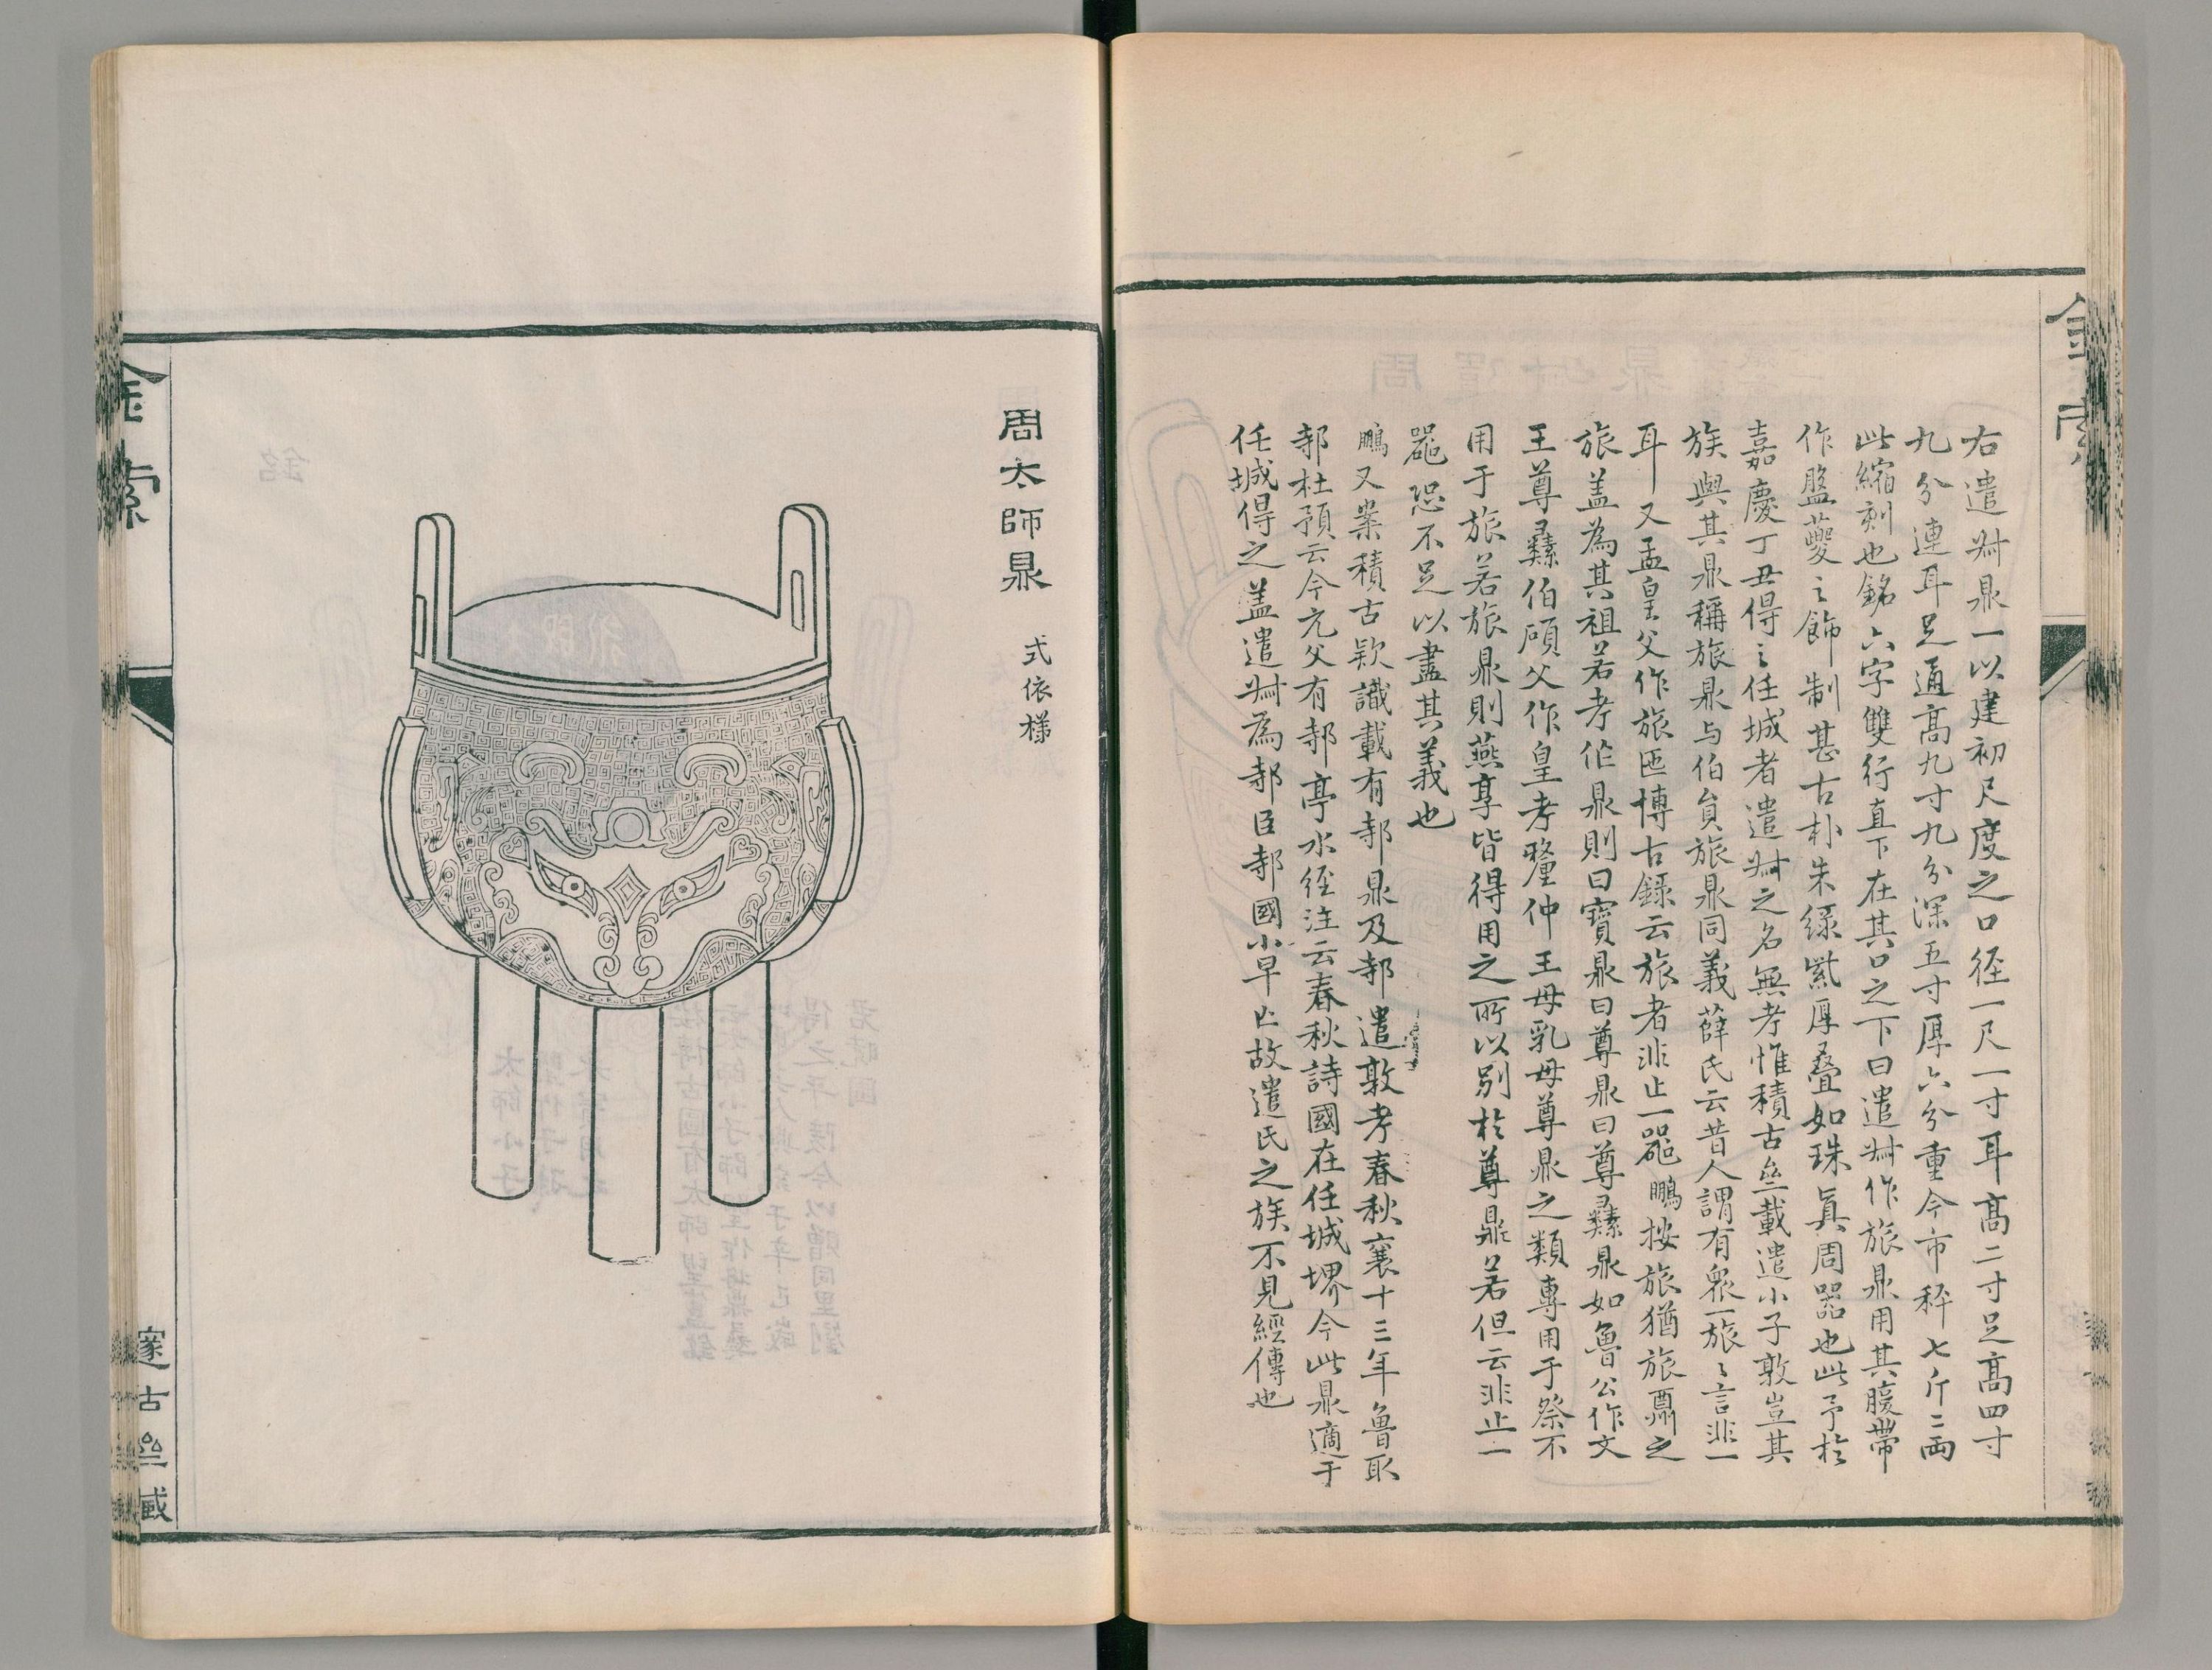 金索
右遣尗鼎一以建初尺度之口径一尺一寸耳髙二寸足髙四寸
九分連耳足通髙九寸九分深五寸厚六分重今市秤七斤二两
此縮刻也銘六字雙行直下在其口之下曰遣尗作旅鼎用其腹帶
作盤夔之飾制甚古朴朱緑氣厚叠如珠眞周器也此予於
嘉慶丁丑得之任城者遣尗之名無考惟積古亝載遣小子敦豈其
族與其鼎稱旅鼎与伯貟旅鼎同義薛氏云昔人謂有衆一旅之言非一
耳又孟皇父作旅匜博古録云旅者非止一噐鵬按旅猶旅酬之
旅盖為其祖若考作鼎則曰寶鼎曰尊鼎曰尊彞鼎如魯公作文
王尊彞伯碩父作皇考釐仲王母乳母尊鼎之類專用于祭不
用于旅若旅鼎則燕享皆得用之所以别於尊鼎若但云非止一
噐恐不足以盡其義也
鵬又案積古欵識載有邿鼎及邿遣敦考春秋襄十三年魯取
邿杜預云今亢父有邿亭水経注云春秋詩國在任城堺今此鼎適于
任城得之盖遣尗為邿臣邿國小早亾故遣氏之族不見經傳也
周太師鼎 式依様
金索
邃古亝藏